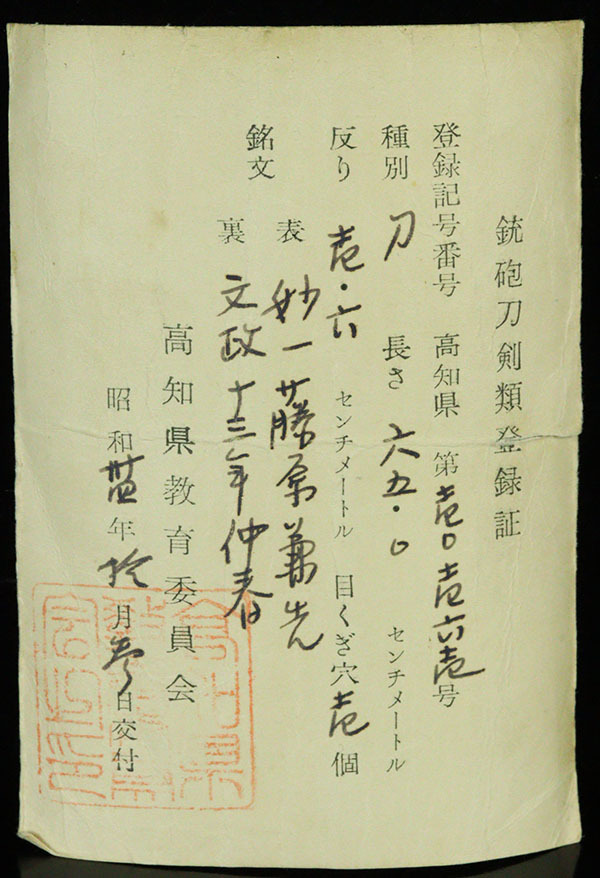 銃砲刀剣類登録証
登録記号番号 高知県 第壱〇壱六壱号
種別 刀 長さ 六五・〇 センチメートル
反り 壱・六 センチメートル 目くぎ穴 壱 個
銘文 表 妙一藤原兼先
裏 文政十三年仲春
高知県教育委員会
昭和 年 拾 月 参 日交付